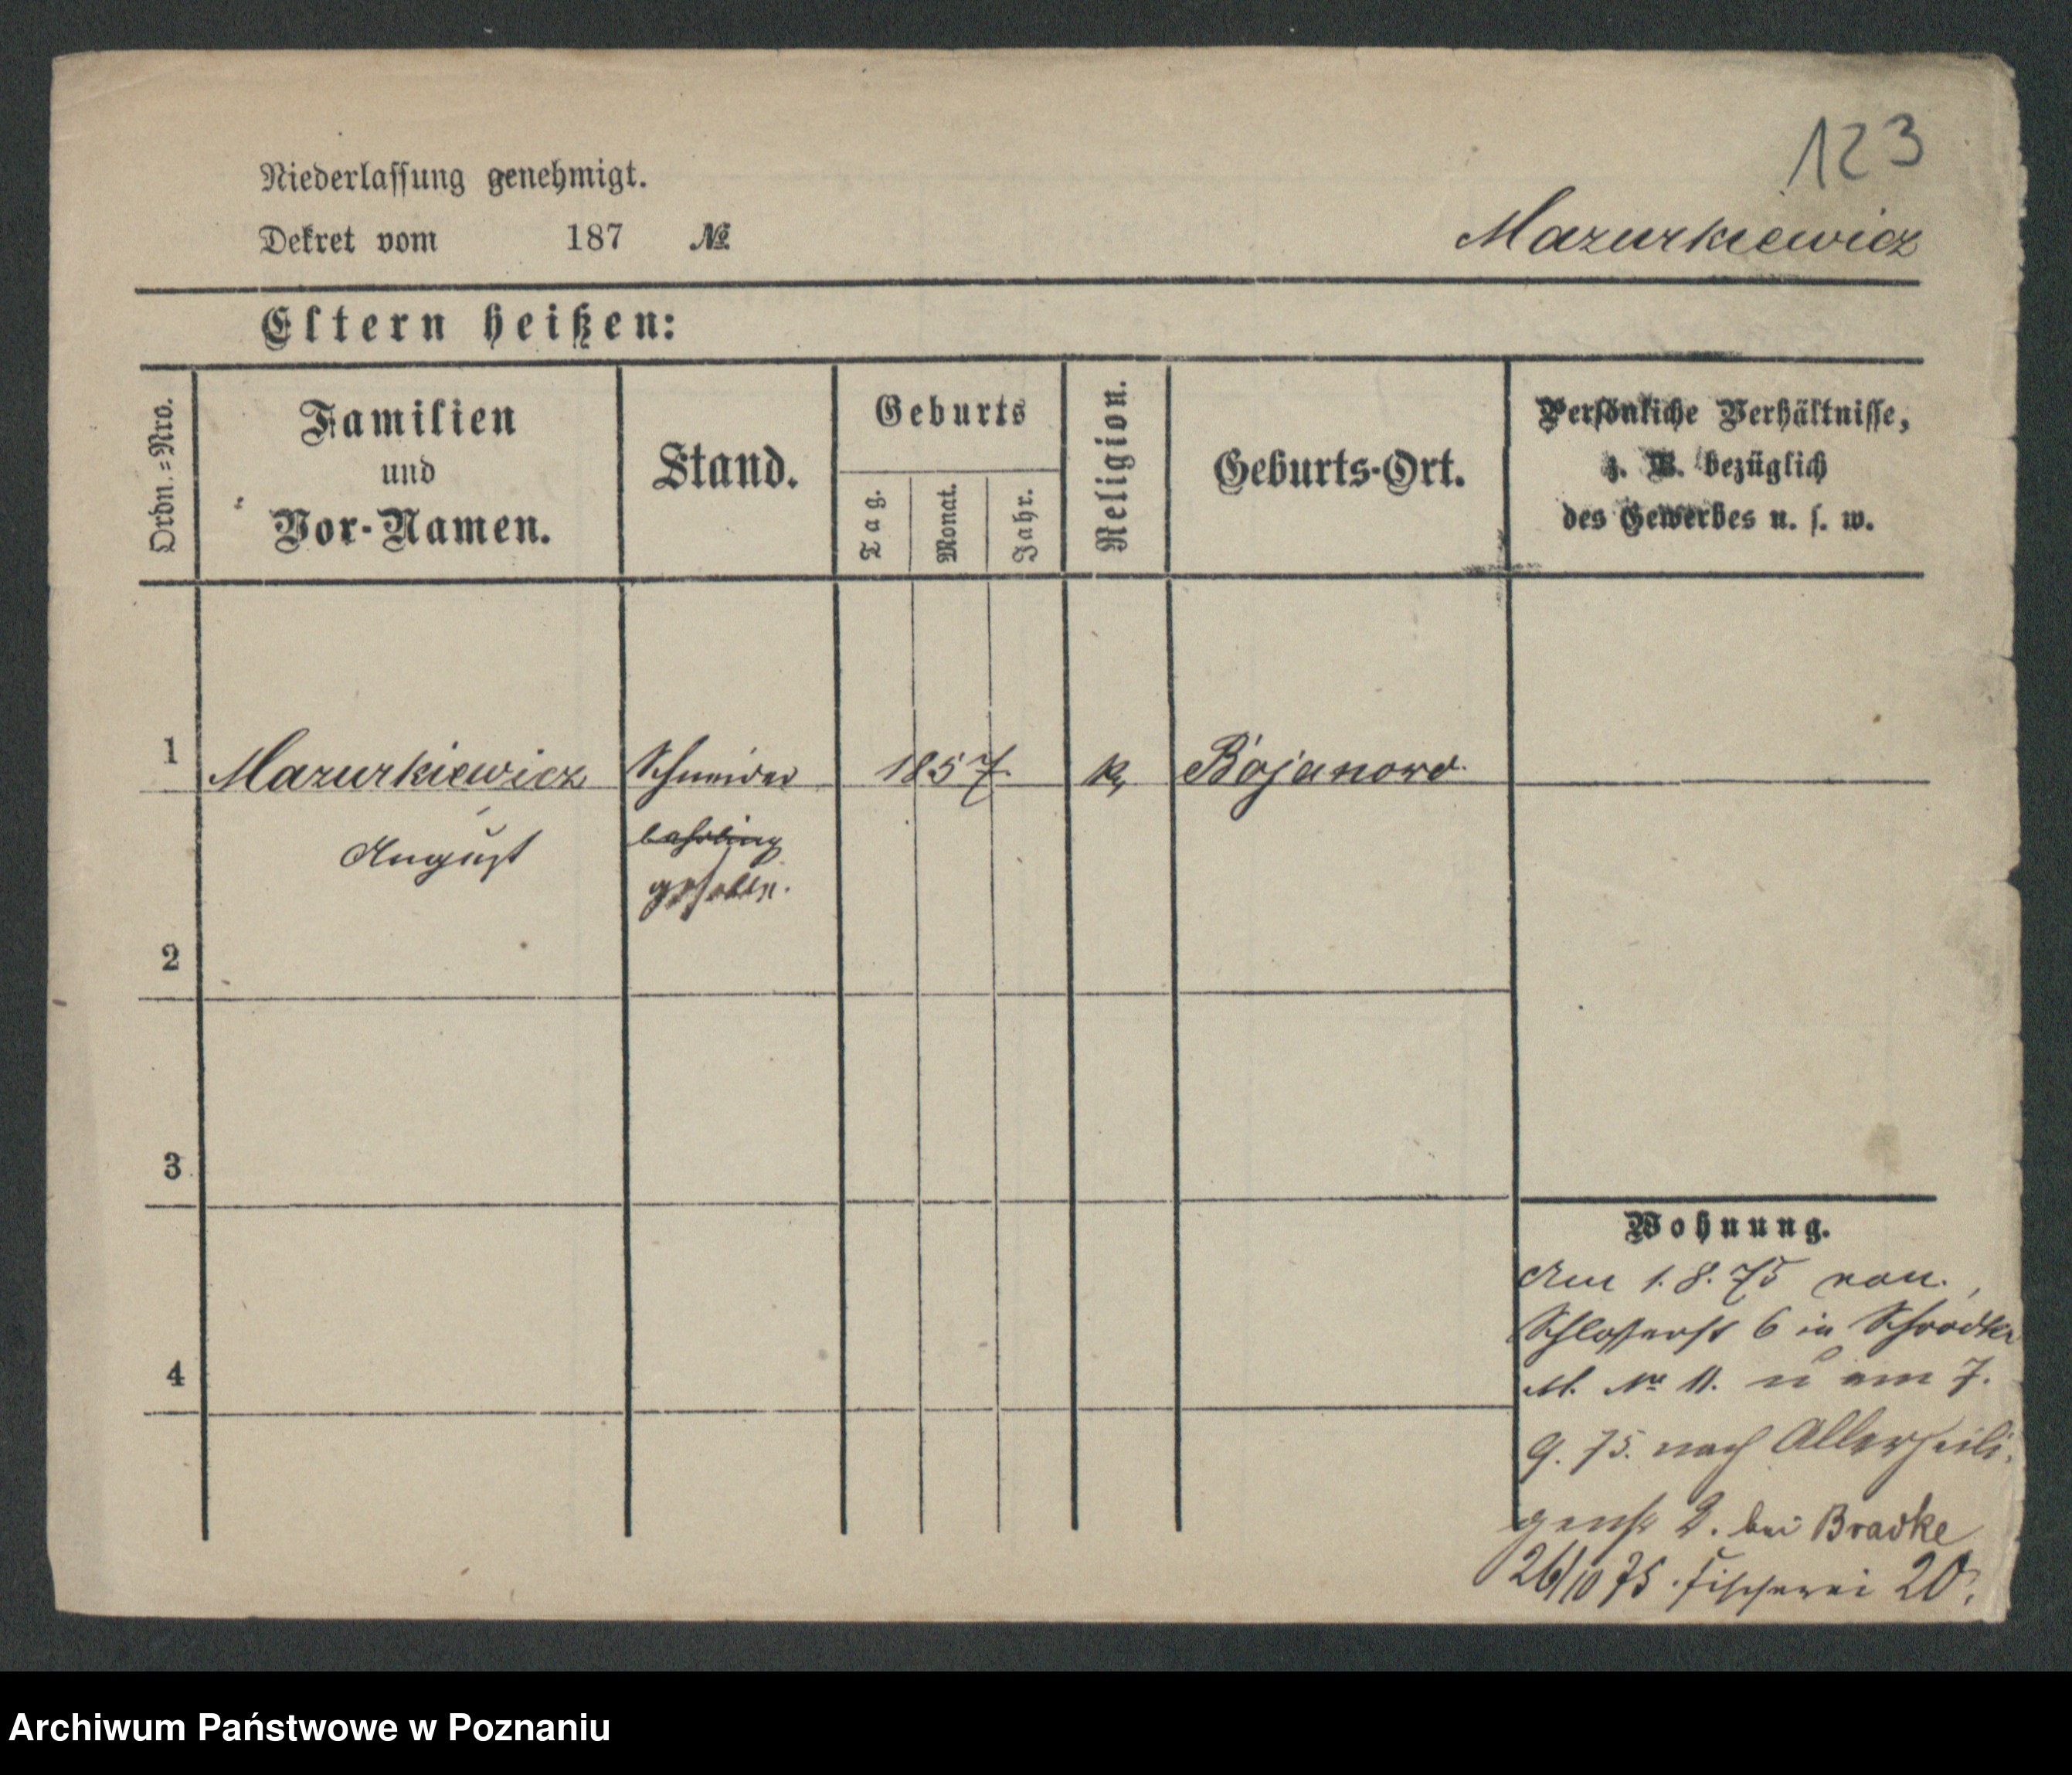 123
Niederlassung genehmigt.
Dekret vom 187 №
Mazurkiewicz
Eltern heißen:
Ordn.=Nro.
Familien
und
Vor-Namen.
Stand.
Geburts
Tag.
Monat.
Jahr.
Religion.
Geburts-Ort.
Persönliche Verhältnisse,
z. B. bezüglich
des Gewerbes u. s. w.
1 Mazurkiewicz Schneider 1857. k. Bojanowo.
August
lehrling
geselle.
2
3
4
Wohnung.
Am 1. 8. 75 von
Schlosserst 6 in Schrodka
M. No 11. u am 7.
9. 75. nach Allerheili-
genst 2. bei Bradke
26/10 75. Fischerei 20.
Archiwum Państwowe w Poznaniu